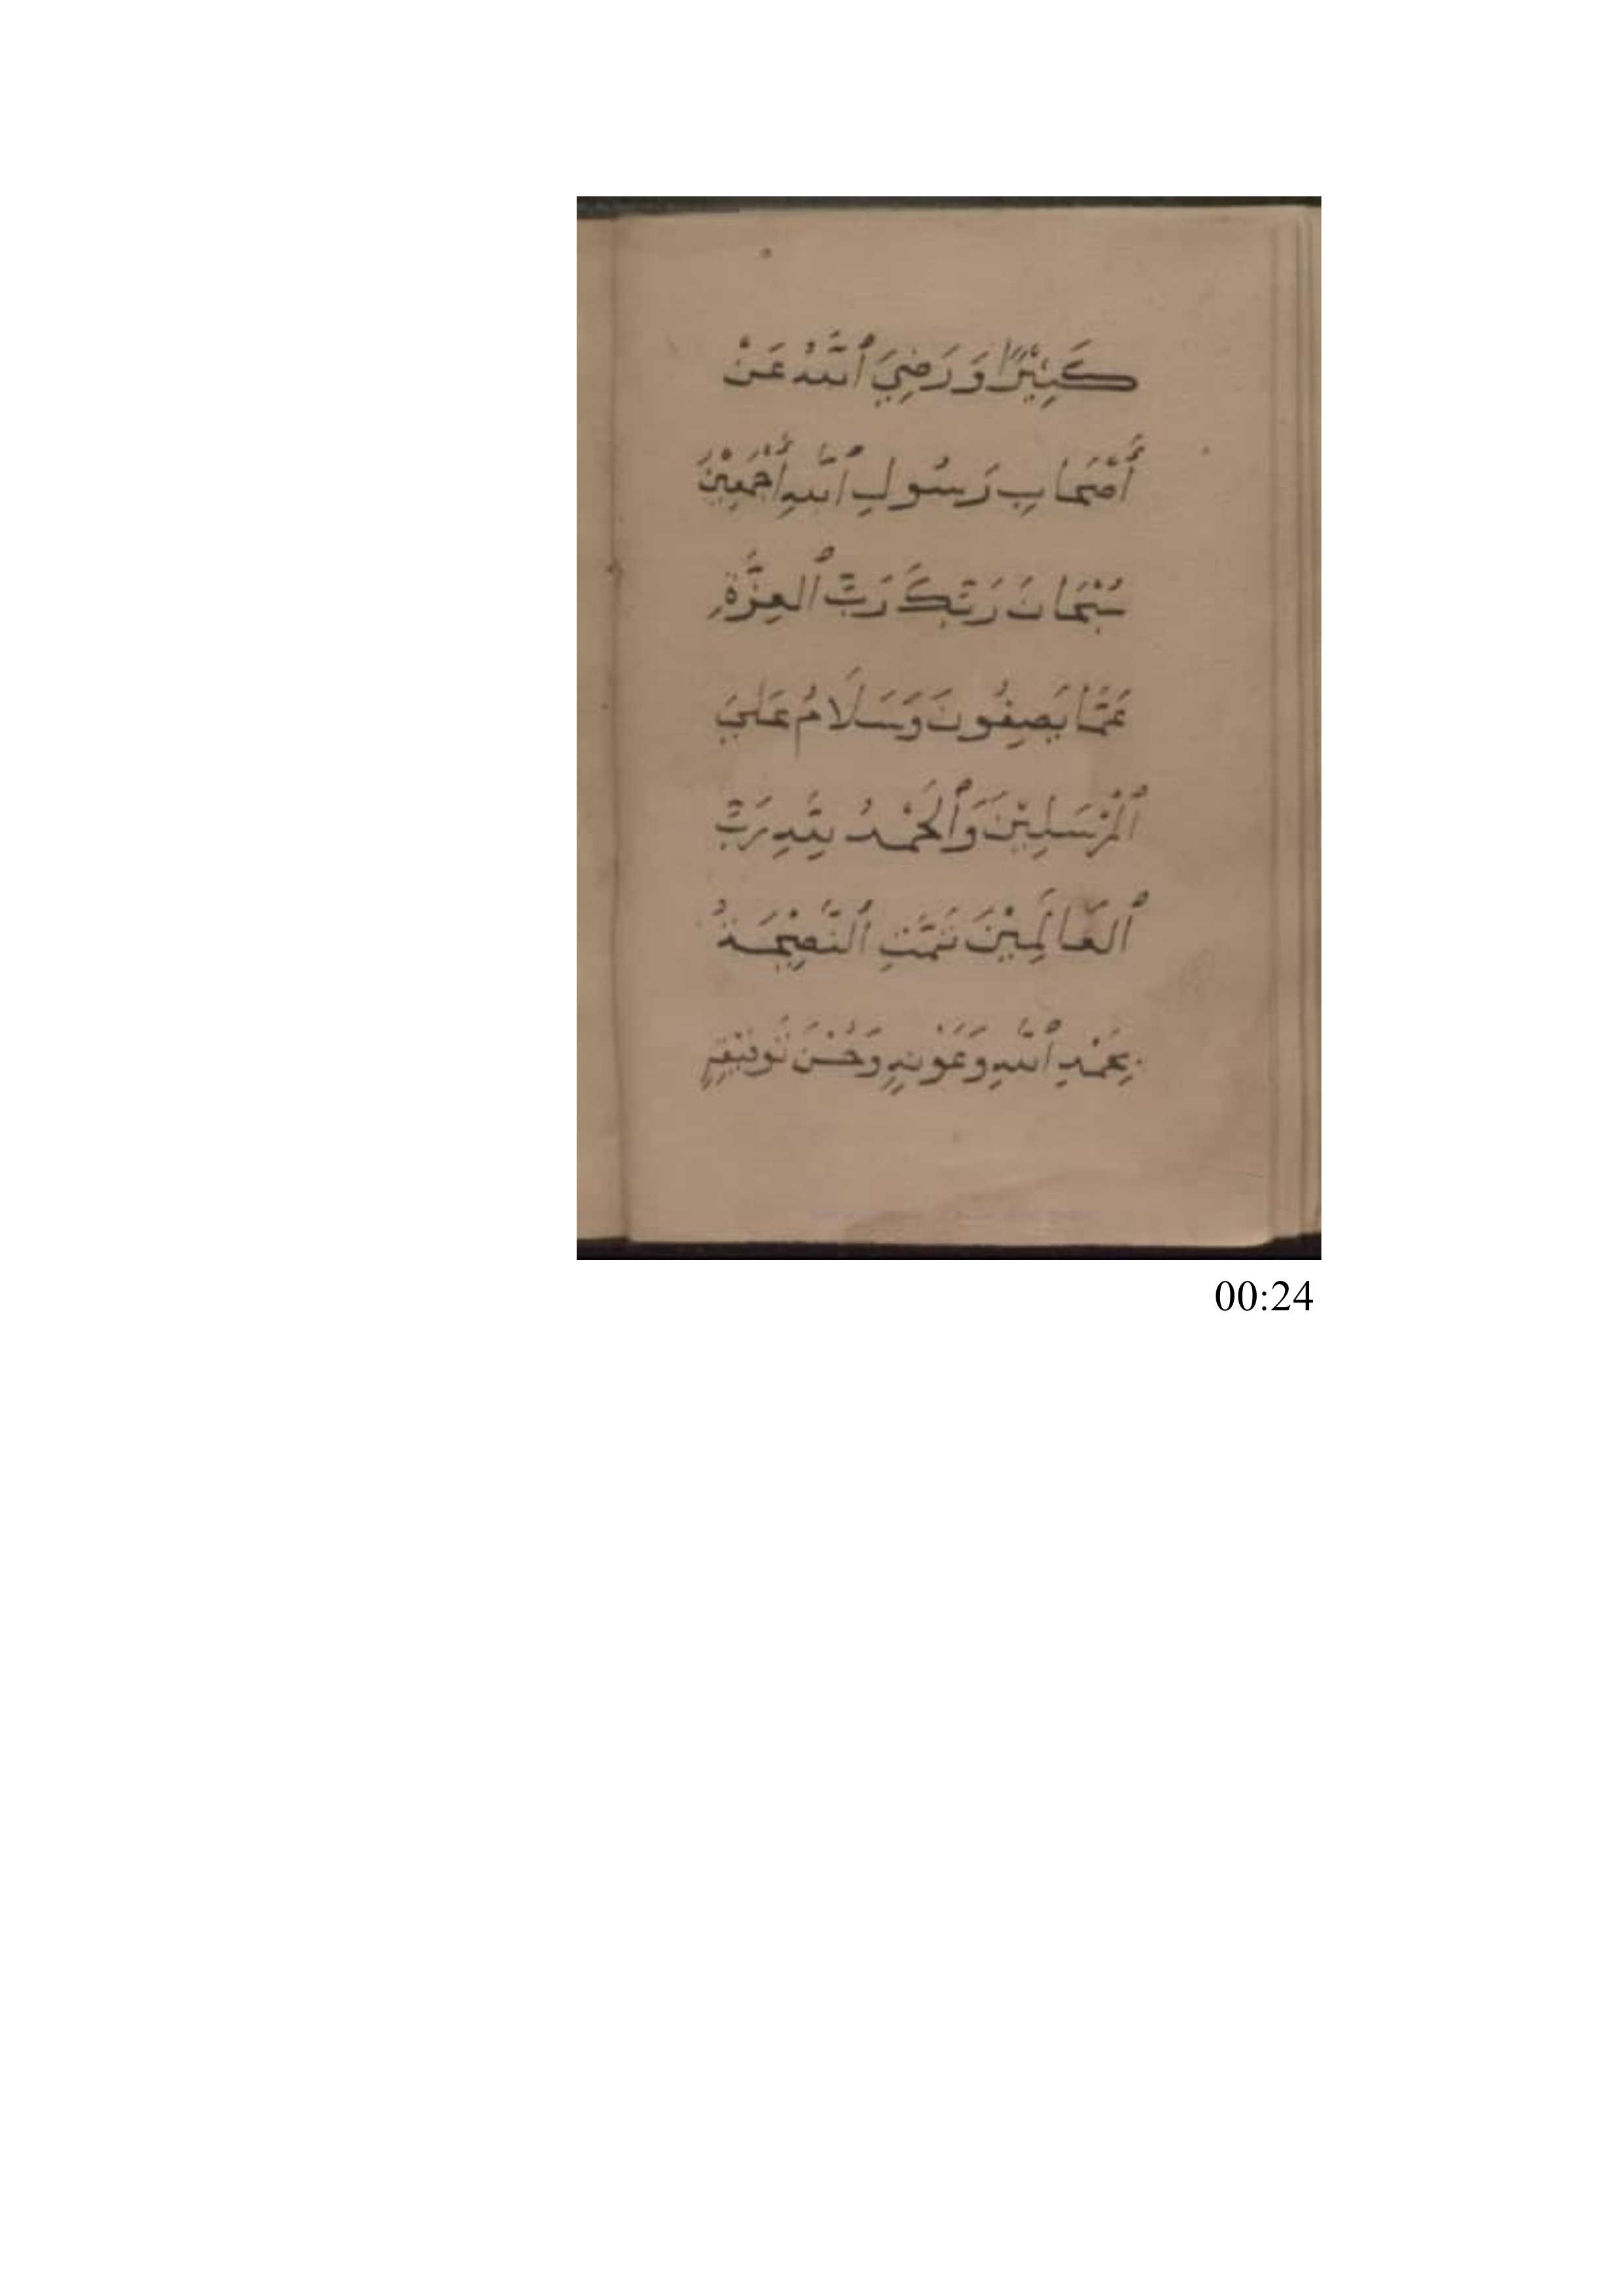 كَثِيْرًا وَرَضِيَ ٱللَّهُ عَنْ
أَصْحَابِ رَسُولِ ٱللَّهِ أَجْمَعِيْنَ
سُبْحَانَ رَبِّكَ رَبِّ ٱلعِزَّةِ
عَمَّا يَصِفُونَ وَسَلَامُ عَلَيَ
ٱلْمُرْسَلِيْنَ وَٱلْحَمْدُ لِلَّهِ رَبِّ
ٱلعَالَمِيْنَ تَمَّتِ ٱلنَّصِيْحَةُ
بِحَمْدِ ٱللَّهِ وَعَوْنِهِ وَحُسْنِ تَوفِيْقِهِ
00:24